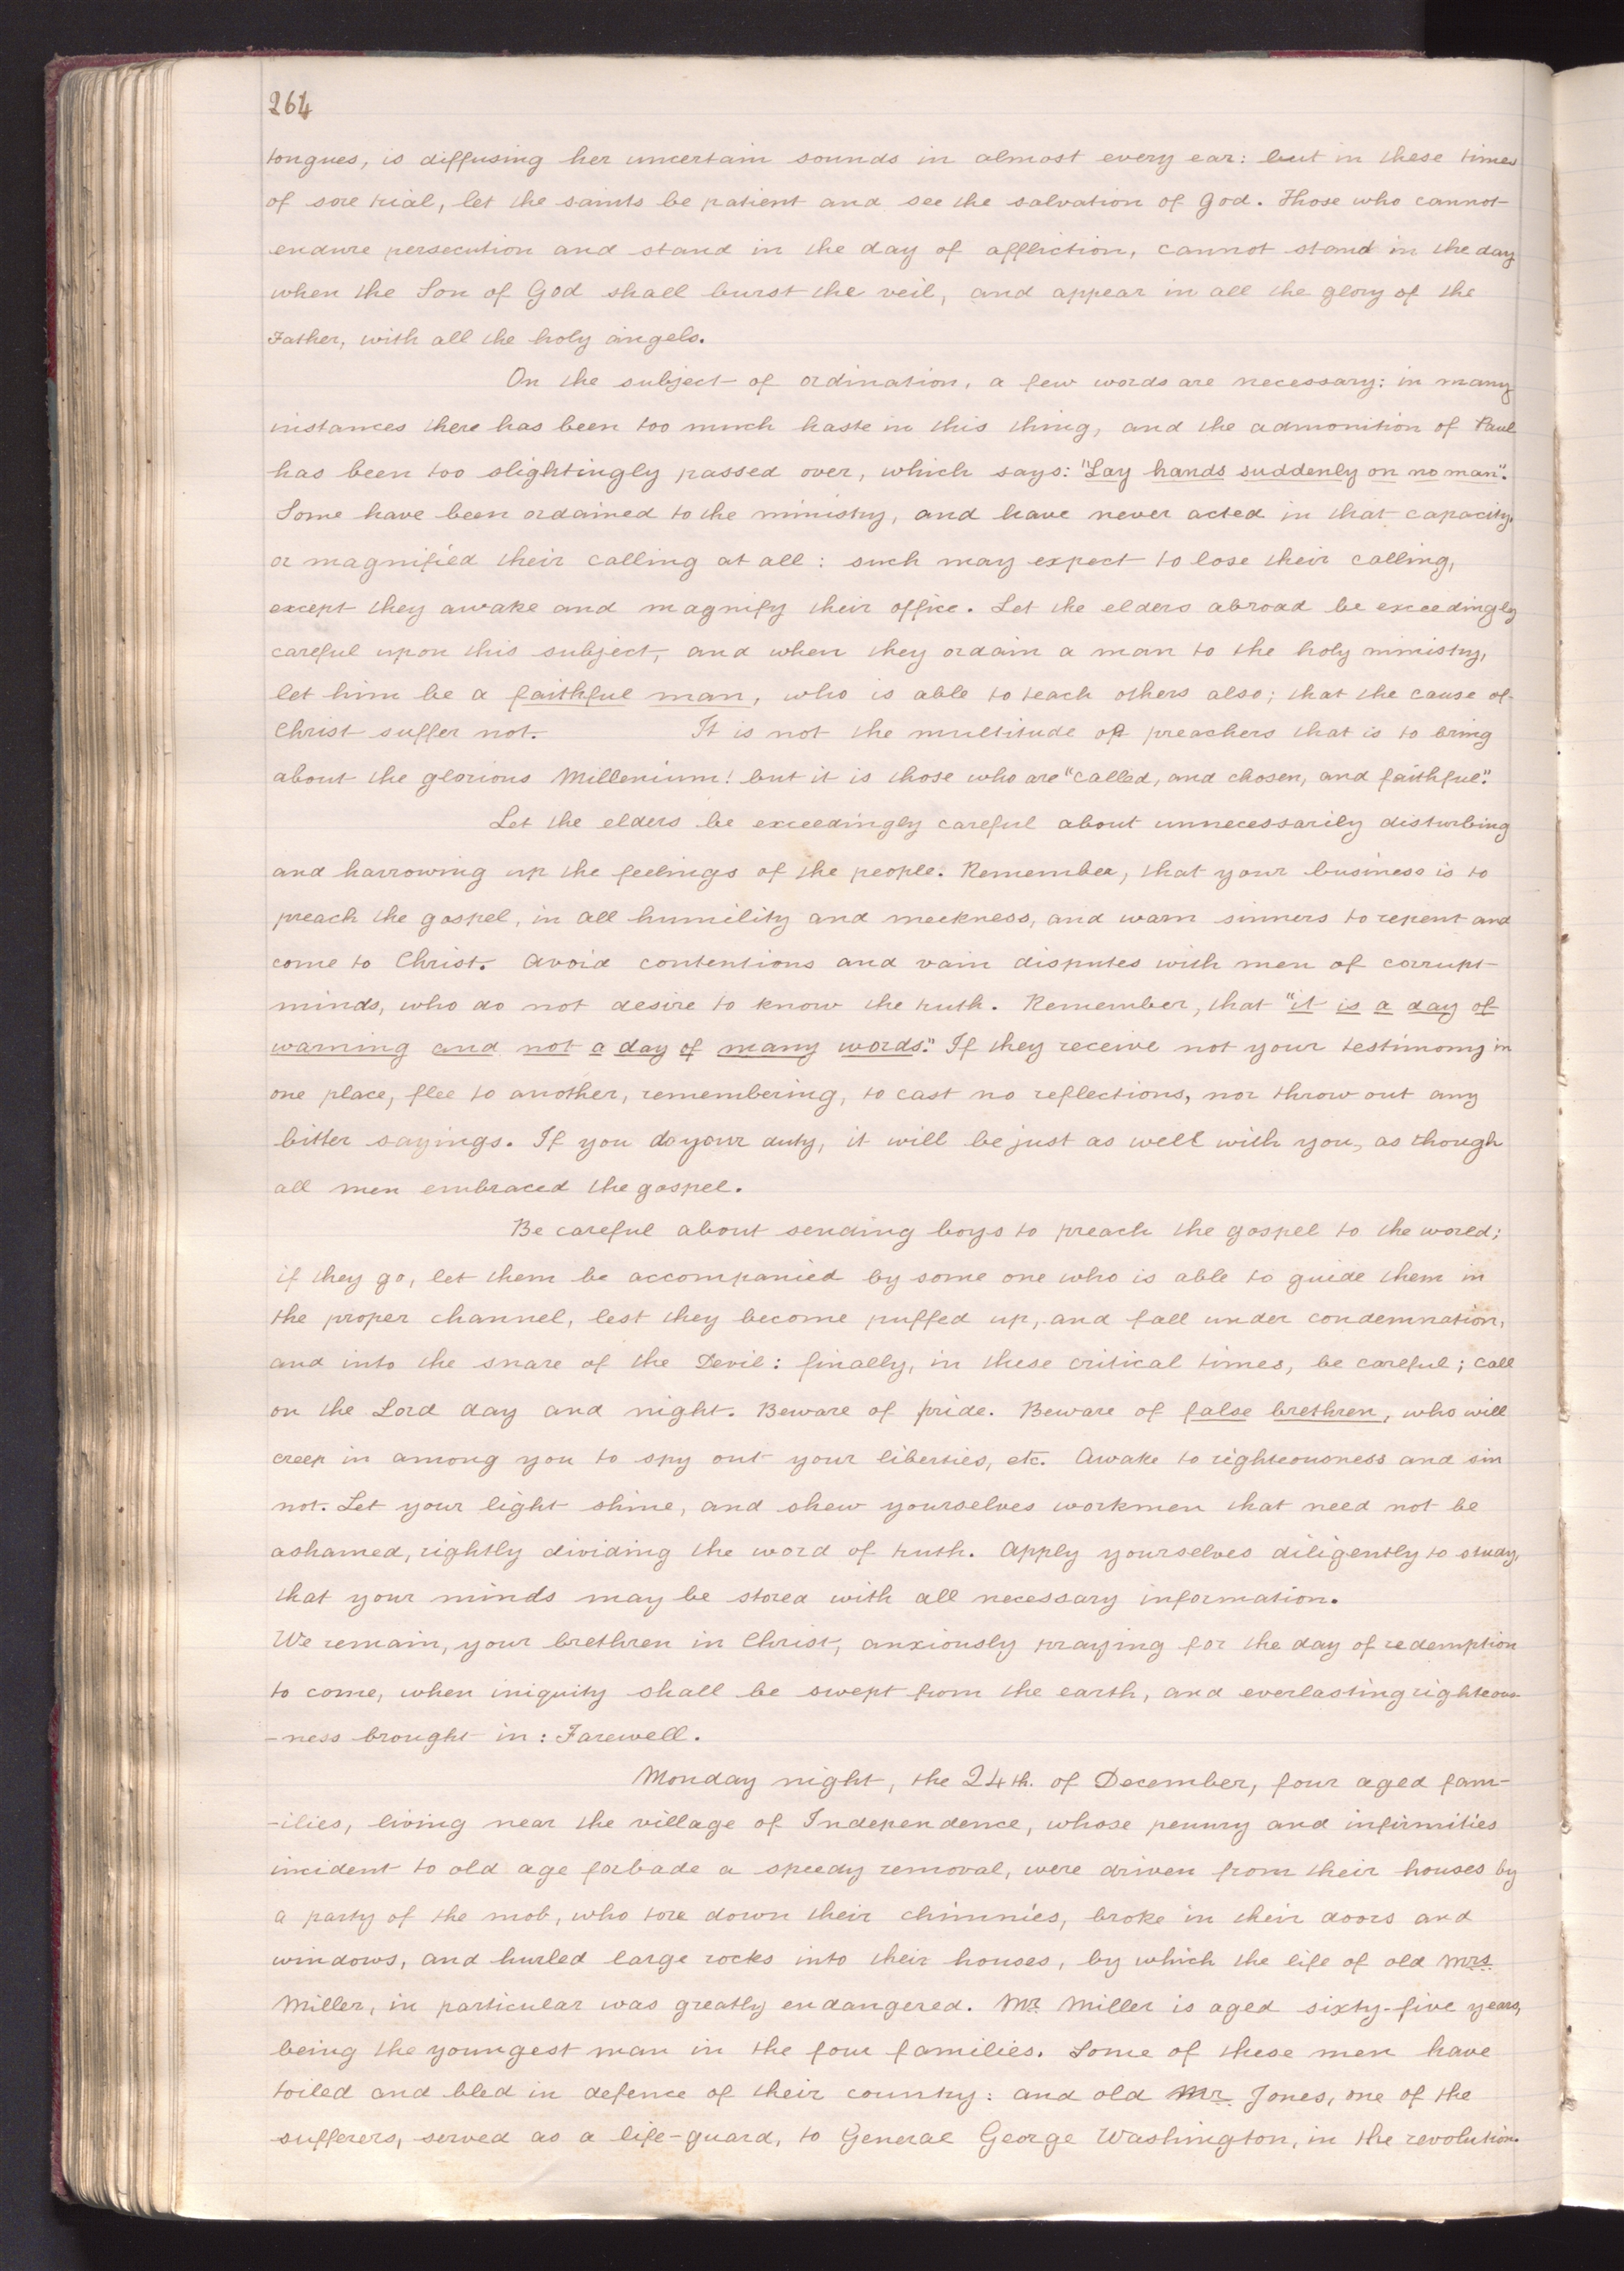 264
tongues, is diffusing her uncertain sounds in almost every ear: but in these times
of sore trial, let the saints be patient and see the salvation of God. Those who cannot
endure persecution and stand in the day of affliction, cannot stand in the day
when the Son of God shall burst the veil, and appear in all the glory of the
Father, with all the holy angels.
On the subject of ordination, a few words are necessary: in many
instances there has been too much haste in this thing, and the admonition of Paul
has been too slightingly passed over, which says: "Lay hands suddenly on no man".
Some have been ordained to the ministry, and have never acted in that capacity,
or magnified their calling at all: such may expect to lose their calling,
except they awake and magnify their office. Let the elders abroad be exceedingly
careful upon this subject, and when they ordain a man to the holy ministry,
let him be a faithful man, who is able to teach others also; that the cause of
Christ suffer not. It is not the multitude of preachers that is to bring
about the glorious Millenium! but it is those who are "called, and chosen, and faithful".
Let the elders be exceedingly careful about unnecessarily disturbing
and harrowing up the feelings of the people. Remember, that your business is to
preach the gospel, in all humility and meekness, and warn sinners to repent and
come to Christ. Avoid contentions and vain disputes with men of corrupt
minds, who do not desire to know the truth. Remember, that "it is a day of
warning and not a day of many words." If they receive not your testimony in
one place, flee to another, remembering, to cast no reflections, nor throw out any
bitter sayings. If you do your duty, it will be just as well with you, as though
all men embraced the gospel.
Be careful about sending boys to preach the gospel to the world;
if they go, let them be accompanied by some one who is able to guide them in
the proper channel, lest they become puffed up, and fall under condemnation,
and into the snare of the Devil: finally, in these critical times, be careful; call
on the Lord day and night. Beware of pride. Beware of false brethren, who will
creep in among you to spy out your liberties, etc. Awake to righteousness and sin
not. Let your light shine, and shew yourselves workmen that need not be
ashamed, rightly dividing the word of truth. Apply yourselves diligently to study,
that your minds may be stored with all necessary information.
We remain, your brethren in Christ, anxiously praying for the day of redemption
to come, when iniquity shall be swept from the earth, and everlasting righteous-
-ness brought in: Farewell.
Monday night, the 24th. of December, four aged fam-
-ilies, living near the village of Independence, whose penury and infirmities
incident to old age forbade a speedy removal, were driven from their houses by
a party of the mob, who tore down their chimnies, broke in their doors and
windows, and hurled large rocks into their houses, by which the life of old Mrs.
Miller, in particular was greatly endangered. Mr. Miller is aged sixty-five years,
being the youngest man in the four families. Some of these men have
toiled and bled in defence of their country: and old Mr. Jones, one of the
sufferers, served as a life-guard, to General George Washington, in the revolution.